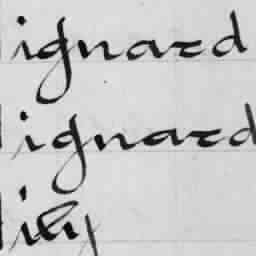 ignard
ignard
ily